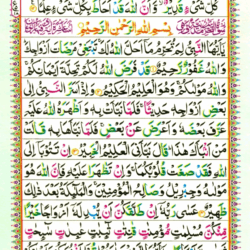 كُلِّ شَىْءٍ قَدِيْرٌ ۙ وَّاَنَّ اللّٰهَ قَدْ اَحَاطَ بِكُلِّ شَىْءٍ عِلْمًا
بِسْمِ اللّٰهِ الرَّحْمٰنِ الرَّحِيْمِ
يٰۤاَيُّهَا النَّبِىُّ لِمَ تُحَرِّمُ مَاۤ اَحَلَّ اللّٰهُ لَكَ ۚ تَبْتَغِىْ مَرْضَاتَ اَزْوَاجِكَ ؕ
وَاللّٰهُ غَفُوْرٌ رَّحِيْمٌ قَدْ فَرَضَ اللّٰهُ لَكُمْ تَحِلَّةَ اَيْمَانِكُمْ ۚ
وَاللّٰهُ مَوْلٰىكُمْ ۚ وَهُوَ الْعَلِيْمُ الْحَكِيْمُ وَاِذْ اَسَرَّ النَّبِىُّ اِلٰى
بَعْضِ اَزْوَاجِهٖ حَدِيْثًا ۚ فَلَمَّا نَبَّاَتْ بِهٖ وَاَظْهَرَهُ اللّٰهُ عَلَيْهِ
عَرَّفَ بَعْضَهٗ وَاَعْرَضَ عَنْۢ بَعْضٍ ۚ فَلَمَّا نَبَّاَهَا بِهٖ قَالَتْ
مَنْ اَنْۢبَاَكَ هٰذَا ؕ قَالَ نَبَّاَنِىَ الْعَلِيْمُ الْخَبِيْرُ اِنْ تَتُوْبَاۤ اِلَى
اللّٰهِ فَقَدْ صَغَتْ قُلُوْبُكُمَا ۚ وَاِنْ تَظٰهَرَا عَلَيْهِ فَاِنَّ اللّٰهَ هُوَ
مَوْلٰىهُ وَجِبْرِيْلُ وَصَالِحُ الْمُؤْمِنِيْنَ ۚ وَالْمَلٰٓئِكَةُ بَعْدَ ذٰلِكَ
ظَهِيْرٌ عَسٰى رَبُّهٗۤ اِنْ طَلَّقَكُنَّ اَنْ يُّبْدِلَهٗۤ اَزْوَاجًا خَيْرًا
مِّنْكُنَّ مُسْلِمٰتٍ مُّؤْمِنٰتٍ قٰنِتٰتٍ تٰٓئِبٰتٍ عٰبِدٰتٍ سٰٓئِحٰتٍ